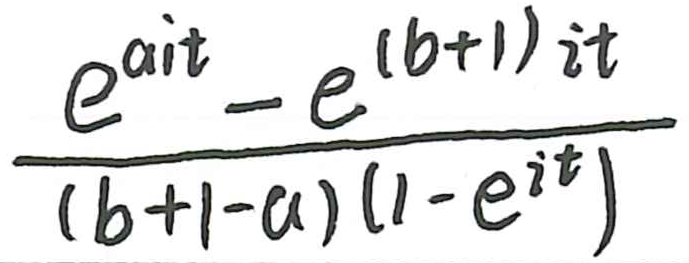 \frac{e^{ait} - e^{(b+1)it}}{(b+1-a)(1-e^{it})}